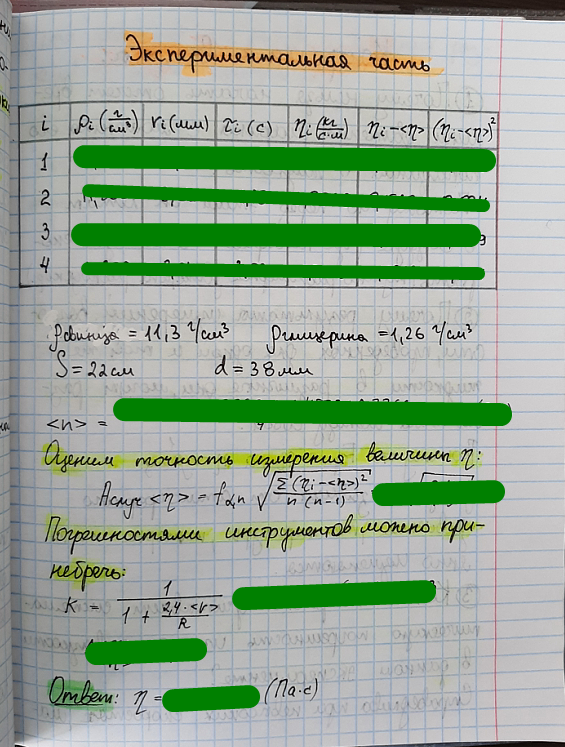 Экспериментальная часть
i ρi (г/см³) ri (мм) τi (с) ηi (кг/с·м) ηi-<η> (ηi-<η>)²
1
2
3
4
ρсвинца = 11,3 г/см³ ρглицерина = 1,26 г/см³
S = 22 см d = 38 мм
<n> =
4
Оценим точность измерения величины η:
Aслуч <η> = fαn √(Σ(ηi-<η>)²/n(n-1))
Погрешностями инструментов можно при-
небречь:
K = 1/(1 + 2,4·<r>/R)
Ответ: η = (Па·с)